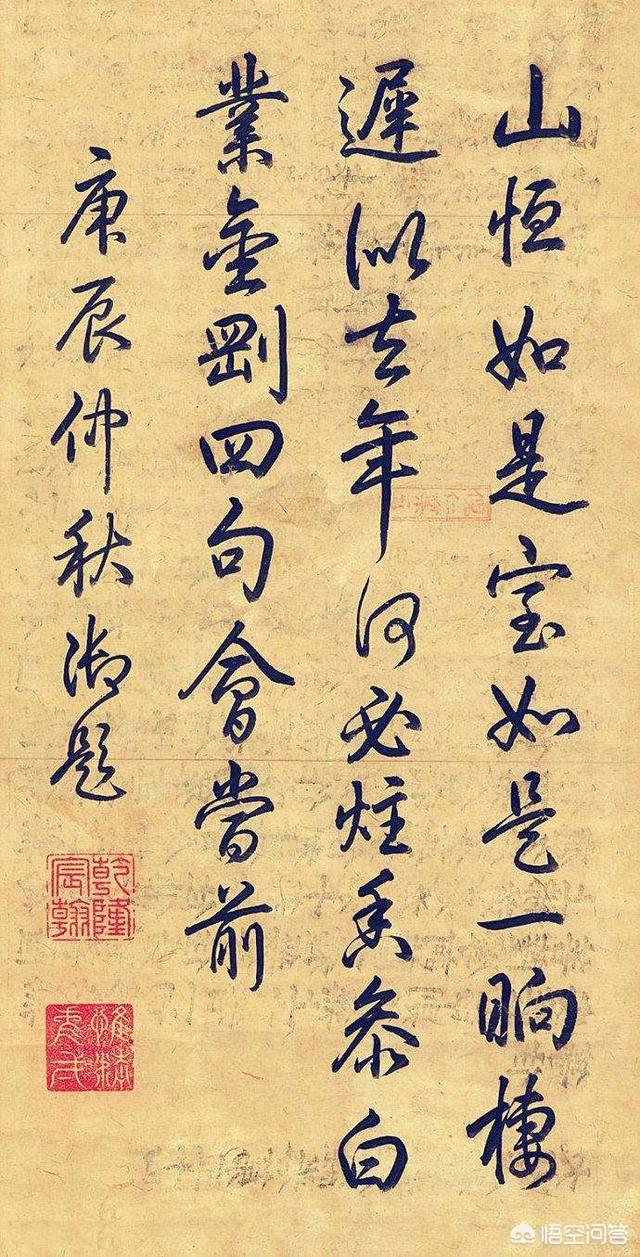 山恒如是室如是一晌棲
遲似去年何必炷香参白
業金剛四句會當前
庚辰仲秋御題
乾隆宸翰
惟精惟一
悟空问答